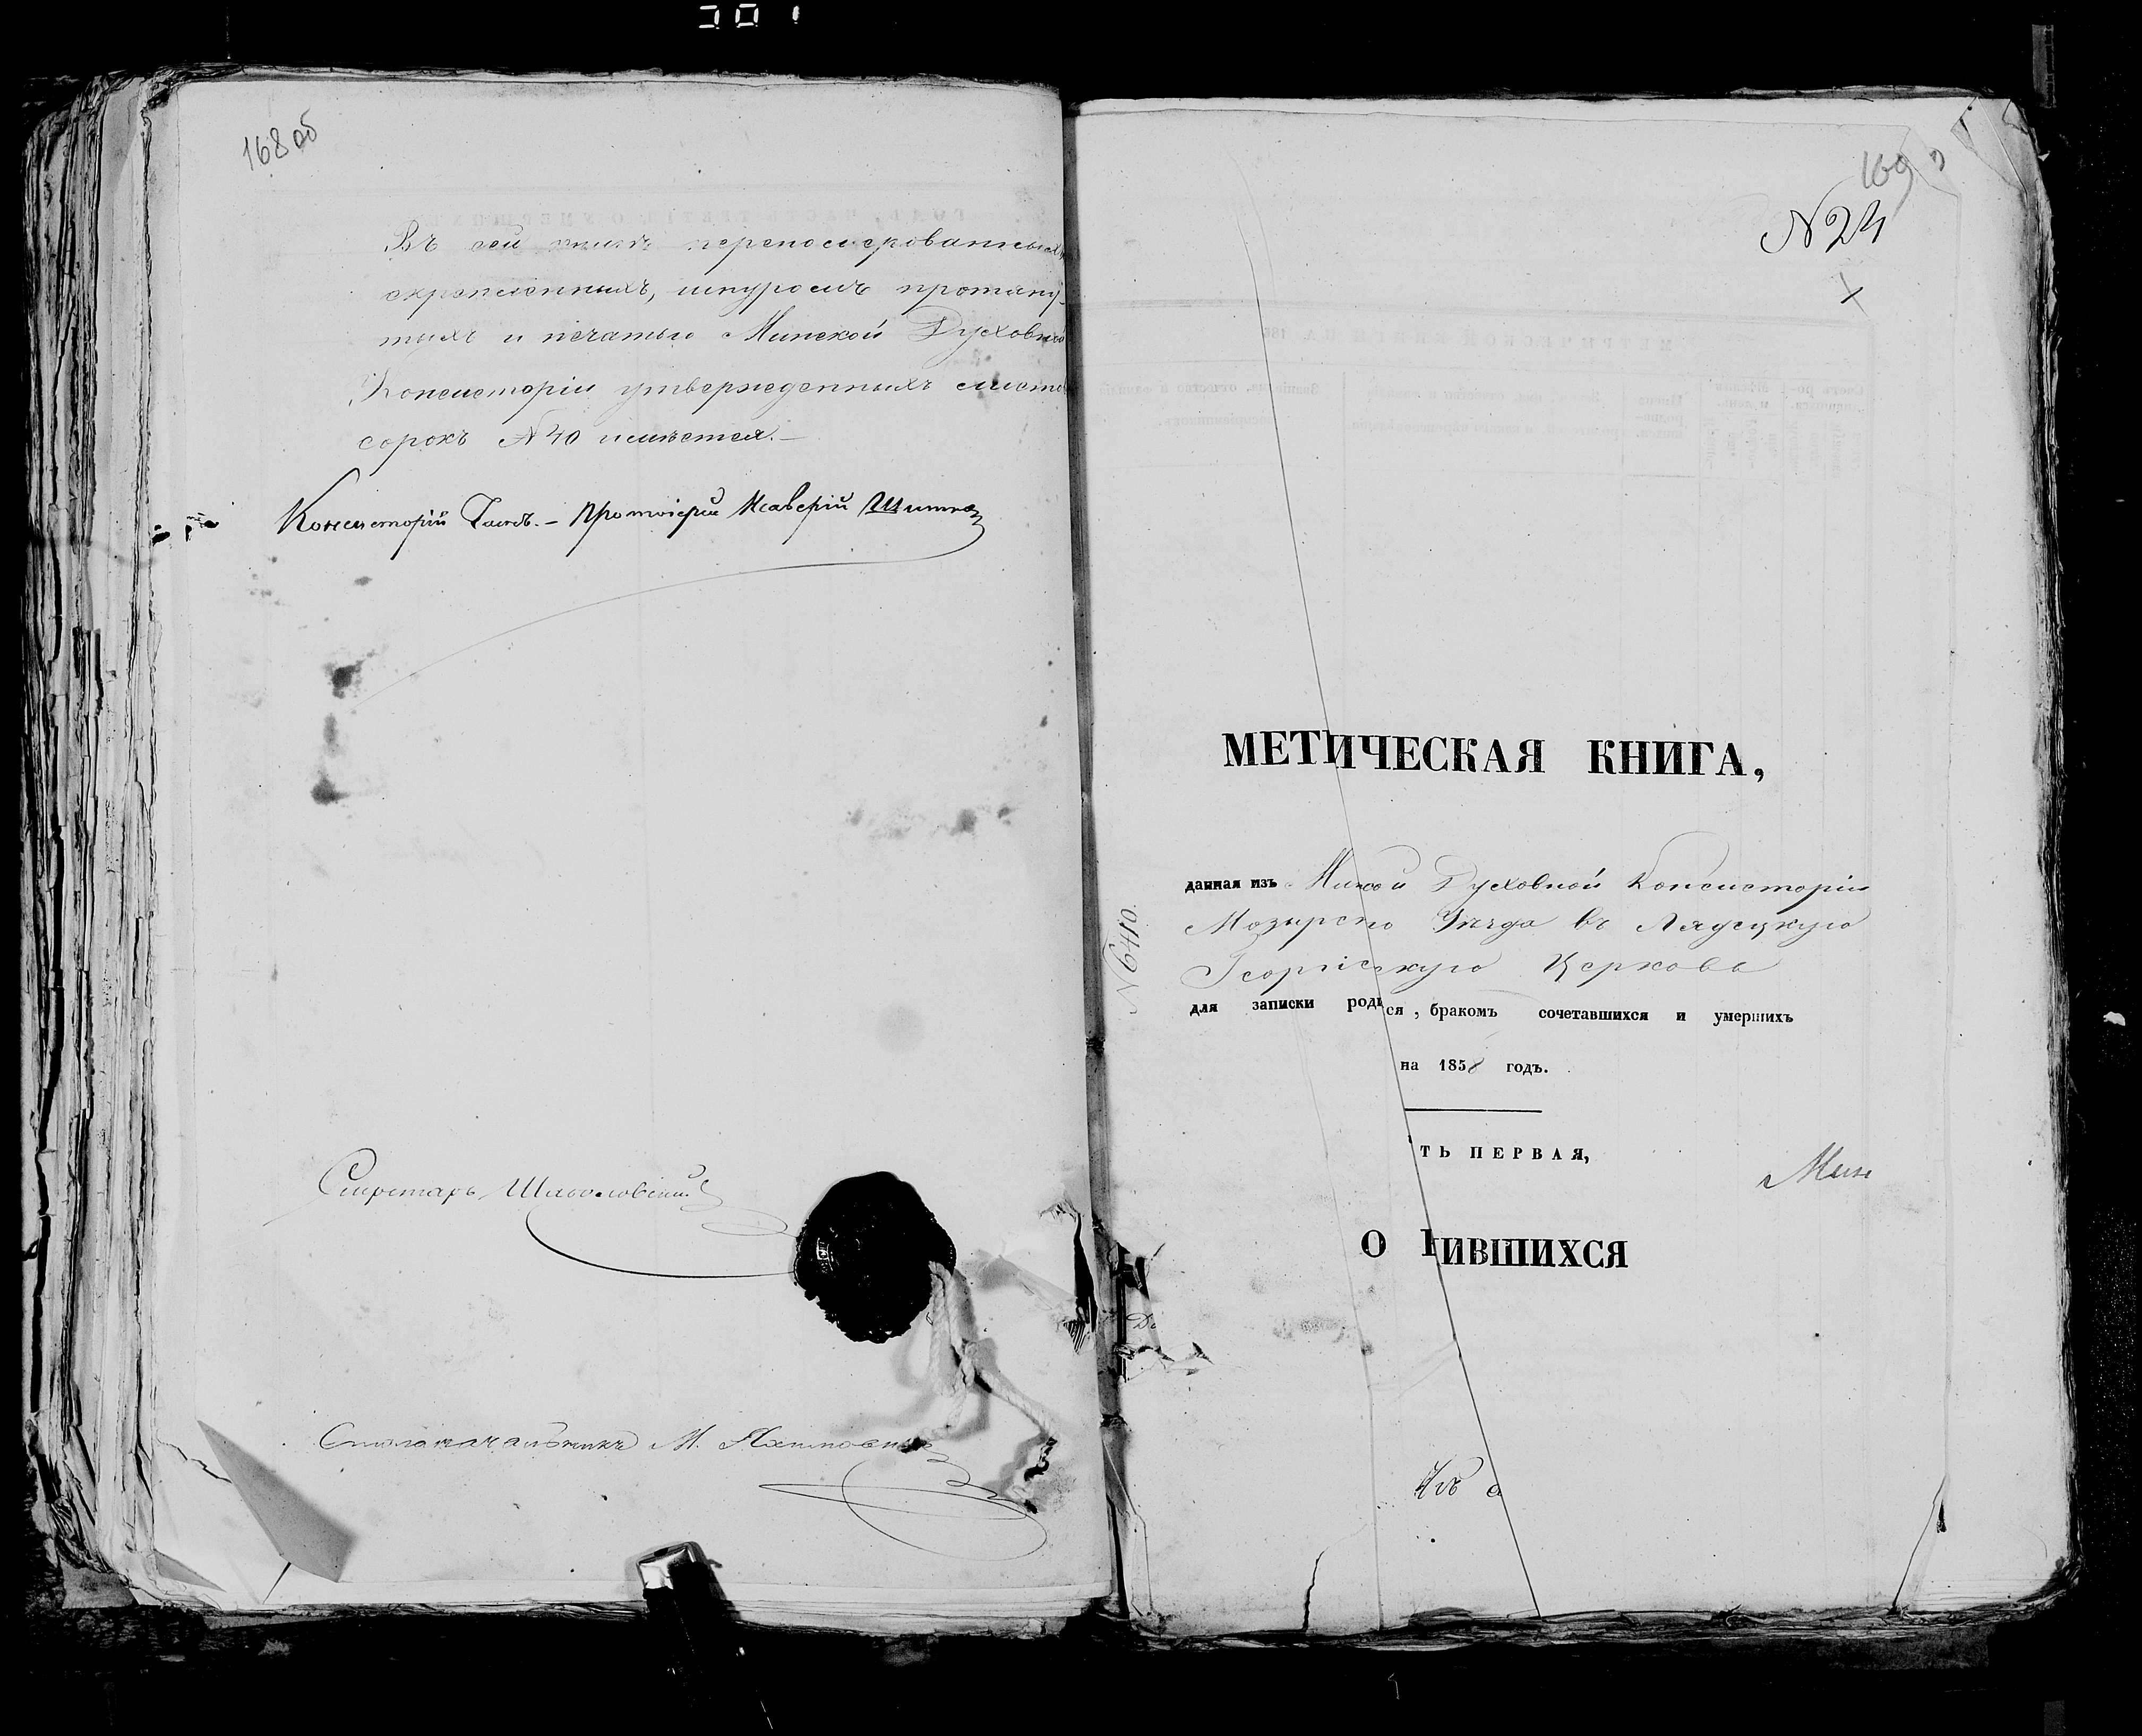 301
168 об
Въ сей книгѣ перенумерованныхъ,
скрепленныхъ, шнуромъ протяну-
тыхъ и печатью Минской Духовной
Консисторіи утвержденныхъ листовъ
сорокъ №40 имѣется.—
Консисторій Членъ.— Протоіерей Ксаверій
Секретарь
Столоначальникъ М.
169
N 24
МЕТИЧЕСКАЯ КНИГА,
данная изъ Минской Духовной Консисторіи
Мозырско Уѣзда въ Лядецкую
Георгіевскую Церковь
N 6410.
для записки роди ся, бракомъ сочетавшихся и умершихъ
на 1858 годъ.
ТЬ ПЕРВАЯ,
Мин
О ИВШИХСЯ